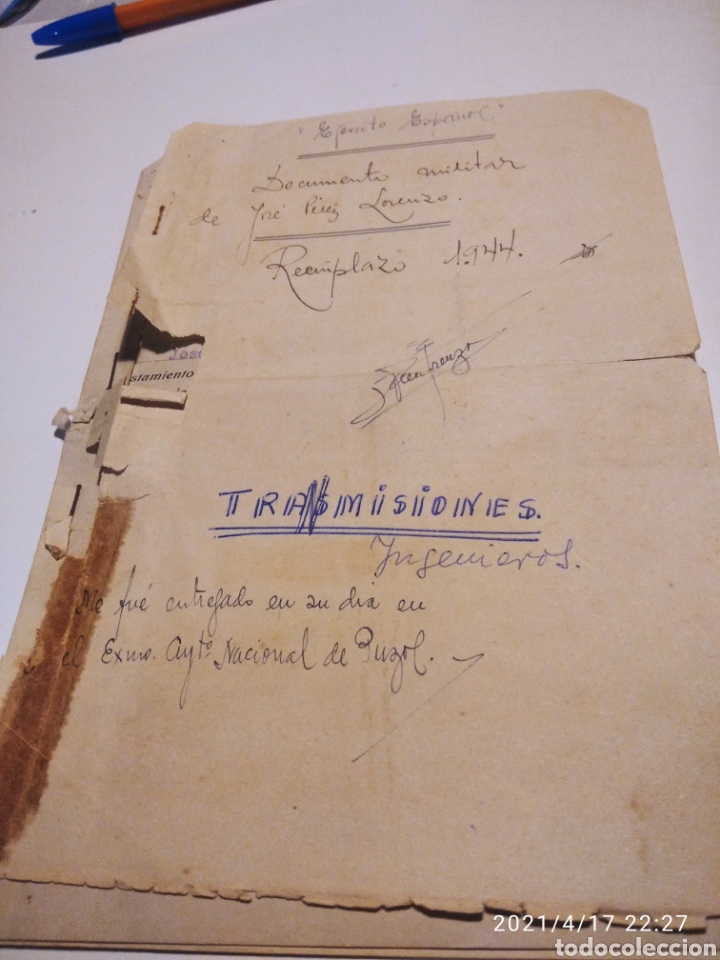 "Ejercito Español"
Documento militar
de José Pérez Lorenzo.
Reemplazo 1.944.
José
istamiento
TRANSMISIONES.
Ingenieros.
Me fué entregado en su dia en
el Exmo. Aytº Nacional de Puzol.
2021/4/17 22:27
todocoleccion